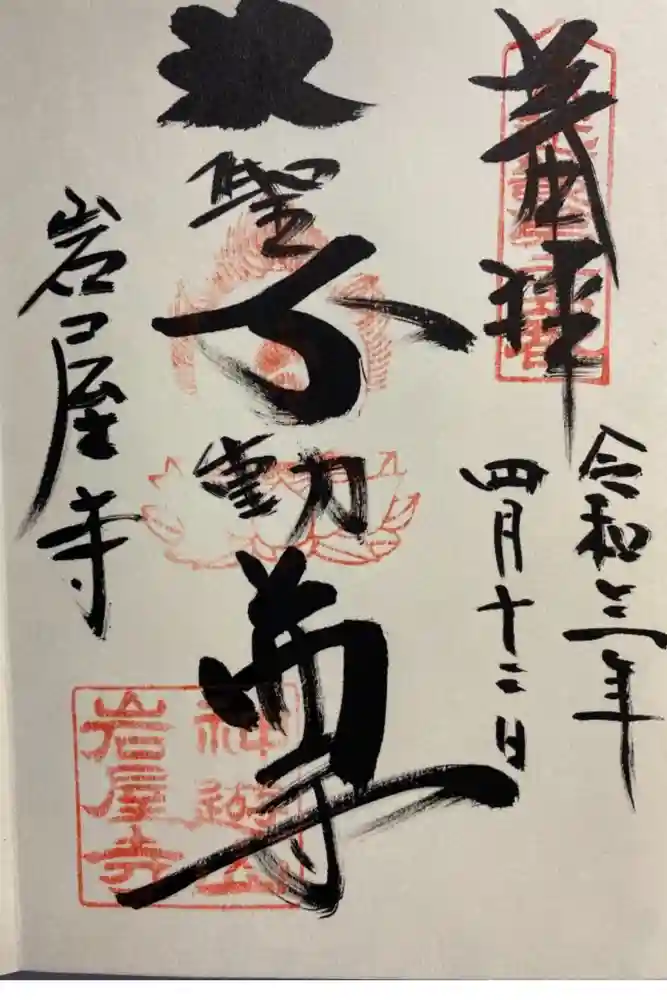 拝
令和三年
四月十二日
大聖不動尊
岩屋寺
神遊山
岩屋寺